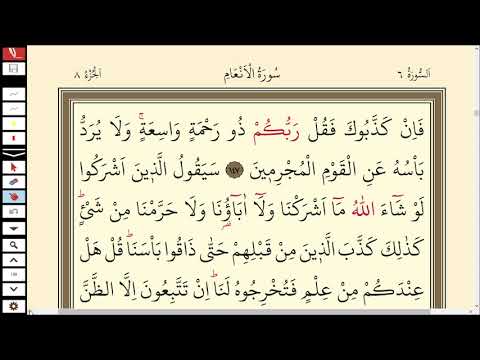 اَلسُّورَةُ ٦ سُورَةُ الْاَنْعَامِ اَلْجُزْءُ ٨
فَاِنْ كَذَّبُوكَ فَقُلْ رَبُّكُمْ ذُو رَحْمَةٍ وَاسِعَةٍۚ وَلَا يُرَدُّ
بَأْسُهُ عَنِ الْقَوْمِ الْمُجْرِمٖينَ ﴿١٤٧﴾ سَيَقُولُ الَّذٖينَ اَشْرَكُوا
لَوْ شَٓاءَ اللّٰهُ مَٓا اَشْرَكْنَا وَلَٓا اٰبَٓاؤُ۬نَا وَلَا حَرَّمْنَا مِنْ شَیْءٍؕ
كَذٰلِكَ كَذَّبَ الَّذٖينَ مِنْ قَبْلِهِمْ حَتّٰى ذَاقُوا بَأْسَنَاؕ قُلْ هَلْ
عِنْدَكُمْ مِنْ عِلْمٍ فَتُخْرِجُوهُ لَنَاؕ اِنْ تَتَّبِعُونَ اِلَّا الظَّنَّ